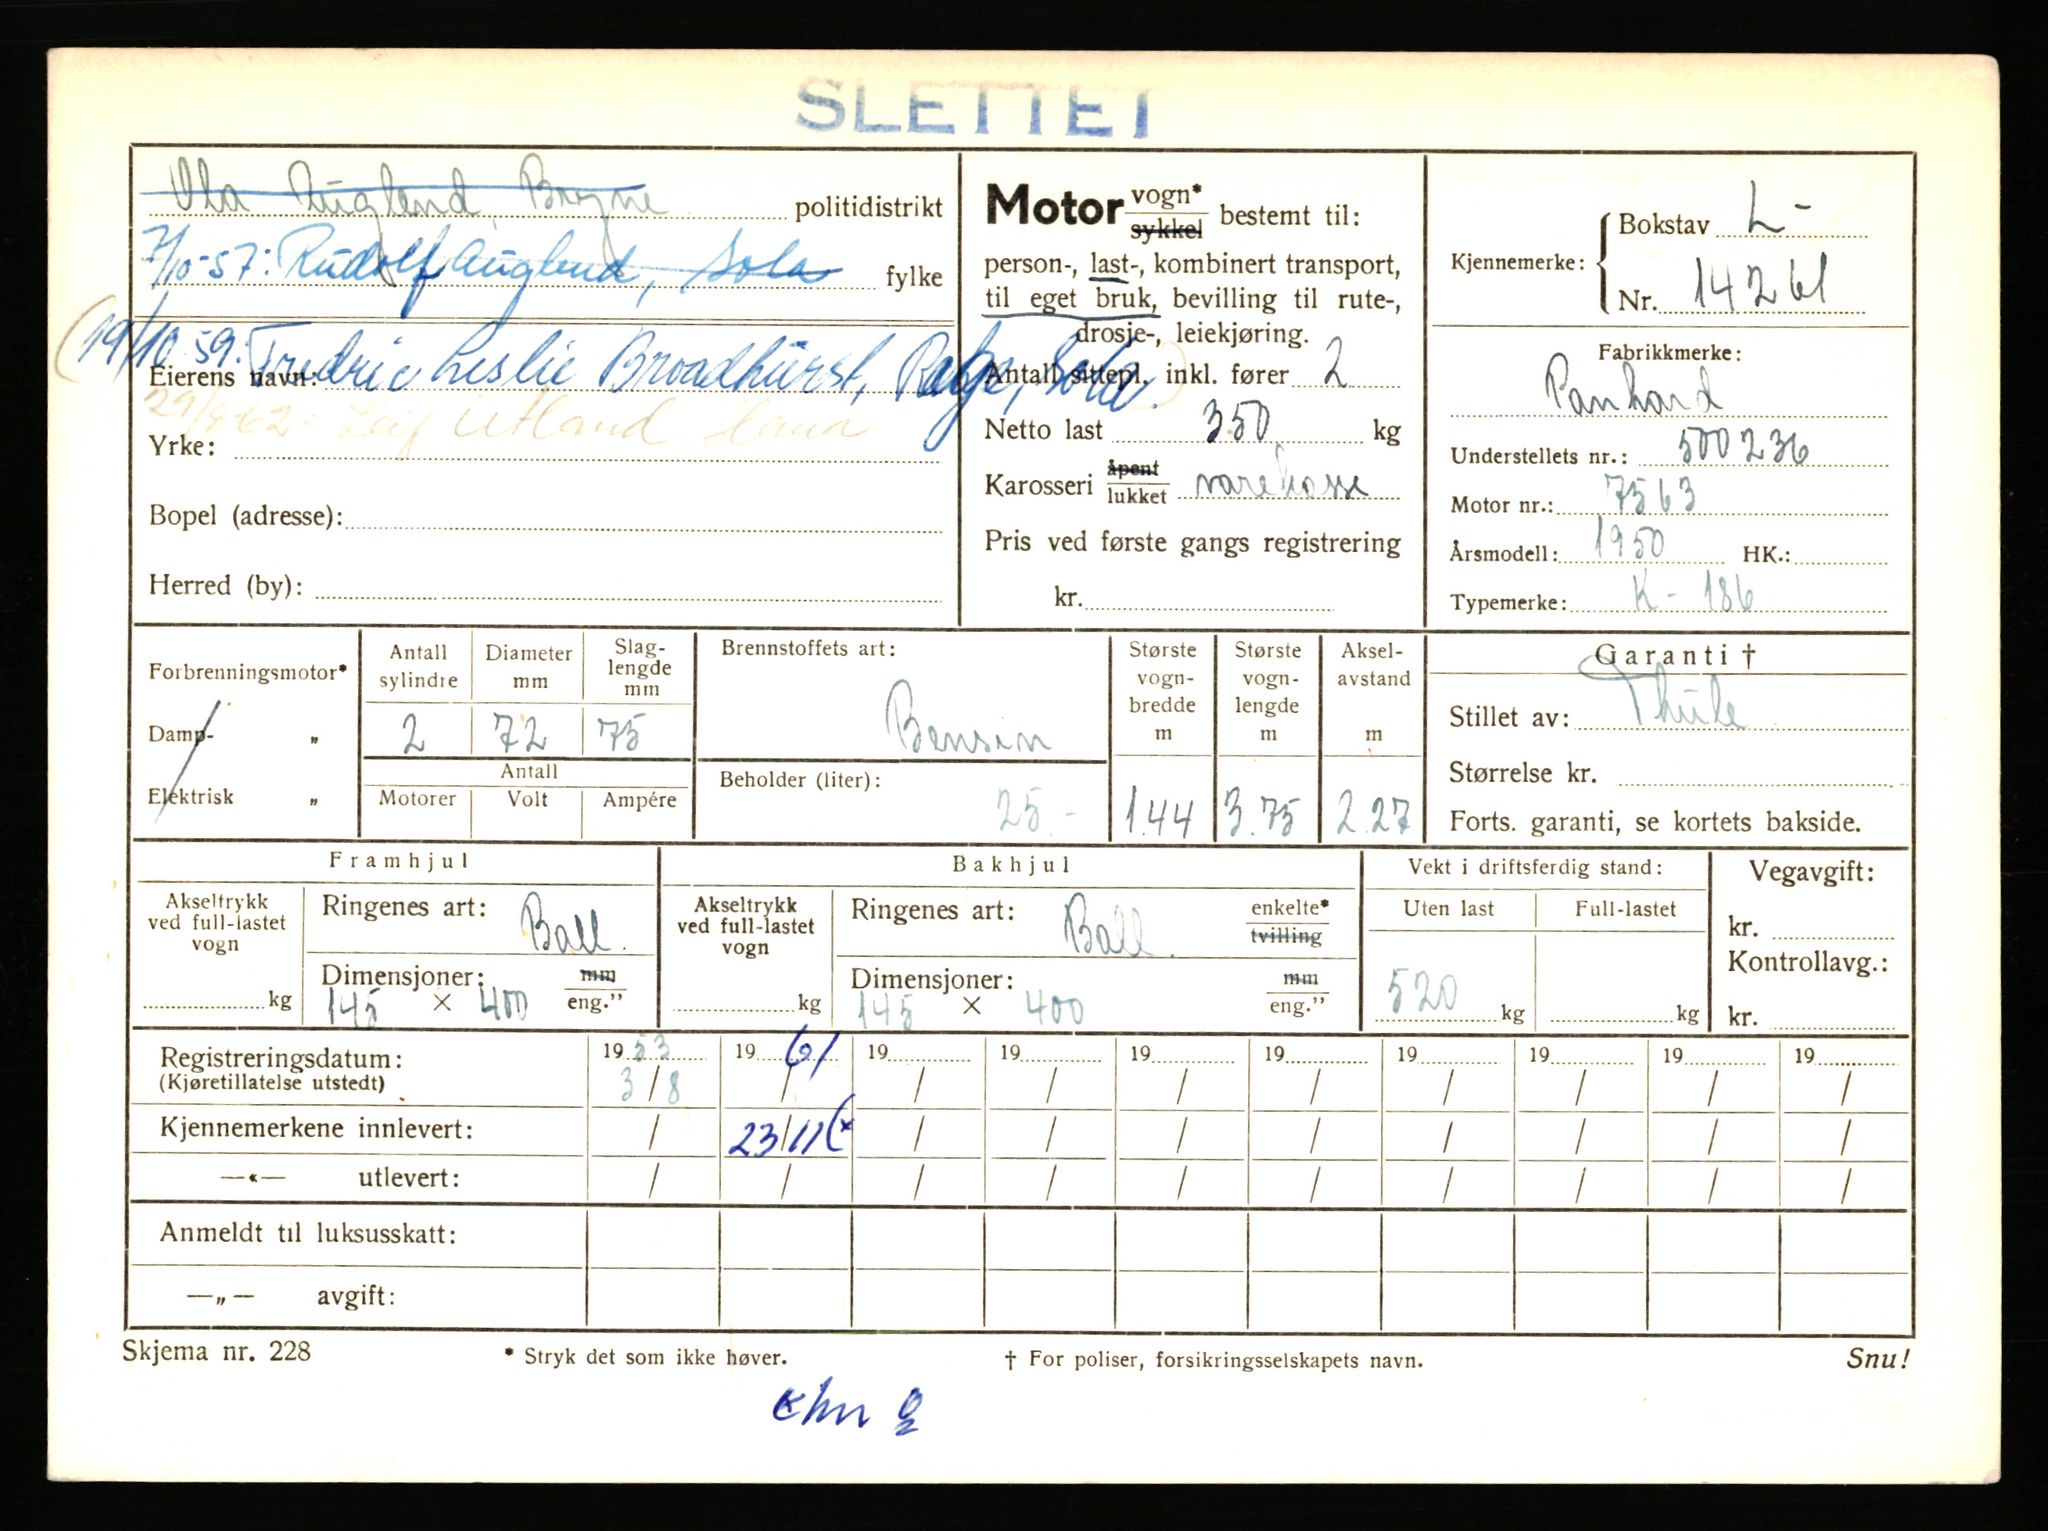 SLETTET
Ola Auglend, Bryne politidistrikt
7/10-57: Rudolf Auglend, Sola fylke
19/10-59: Fredric Leslie Broadhurst, Sola.
Eierens navn:
29/8-62: Leif Utland, Hana
Yrke:
Bopel (adresse):
Herred (by):
Motor vogn* sykkel bestemt til:
person-, last-, kombinert transport,
til eget bruk, bevilling til rute-,
drosje-, leiekjøring.
Antall sittepl. inkl. fører 2
Netto last 350 kg
Karosseri åpent lukket varekasse
Pris ved første gangs registrering
kr.
Kjennemerke: Bokstav L-
Nr. 14261
Fabrikkmerke:
Panhard
Understellets nr.: 500236
Motor nr.: 7563
Årsmodell: 1950 HK.:
Typemerke: K-186
Forbrenningsmotor*
Damp- „
Elektrisk „
Antall sylindre 2
Diameter mm 72
Slaglengde mm 75
Antall
Motorer Volt Ampére
Brennstoffets art:
Bensin
Beholder (liter):
25.-
Største vognbredde m 1.44
Største vognlengde m 3.75
Akselavstand m 2.27
Garanti †
Stillet av: Thule
Størrelse kr.
Forts. garanti, se kortets bakside.
Framhjul
Akseltrykk ved full-lastet vogn kg
Ringenes art: Ball.
Dimensjoner: mm
145 × 400 eng.”
Bakhjul
Akseltrykk ved full-lastet vogn kg
Ringenes art: Ball. enkelte* tvilling
Dimensjoner: mm
145 × 400 eng.”
Vekt i driftsferdig stand:
Uten last Full-lastet
520 kg kg
Vegavgift:
kr.
Kontrollavg.:
kr.
Registreringsdatum: 1953 1961 19 19 19 19 19 19 19 19
(Kjøretillatelse utstedt) 3/8 / / / / / / / / /
Kjennemerkene innlevert: / 23/11(x / / / / / / / /
—«— utlevert: / / / / / / / / / /
Anmeldt til luksusskatt:
—„— avgift:
Skjema nr. 228 * Stryk det som ikke høver. † For poliser, forsikringsselskapets navn. Snu!